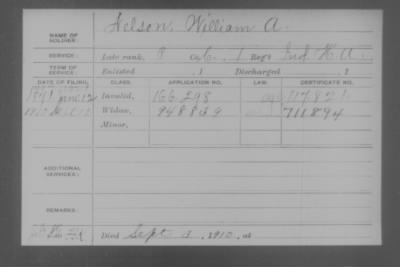 NAME OF SOLDIER: Nelson, William A.
SERVICE: Late rank, Co. 1 Reg't Ind. H. A.
TERM OF SERVICE: Enlisted , 1 Discharged , 1
DATE OF FILING. CLASS. APPLICATION NO. LAW. CERTIFICATE NO.
1891 June 12 Invalid, 166.298 117821
Widow, 948839 711894
Minor,
ADDITIONAL SERVICES:
REMARKS:
Died Sept , 1910, at